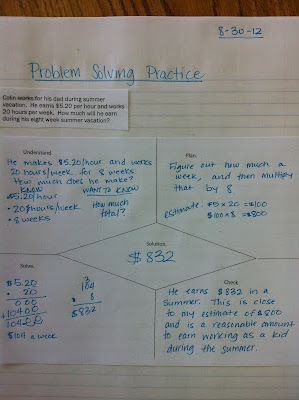 8-30-12
Problem Solving Practice
Colin works for his dad during summer
vacation. He earns $5.20 per hour and works
20 hours per week. How much will he earn
during his eight week summer vacation?
Understand.
He makes $5.20/hour and works
20 hours/week for 8 weeks.
How much does he make?
KNOW WANT TO KNOW
$5.20/hour
• 20 hours/week How much
• 8 weeks total?
Plan.
Figure out how much a
week, and then multiply
that by 8.
estimate: $5 x 20 = $100
$100 x 8 = $800
Solution.
$832
Solve.
$5.20
x 20
000
+10400
10400
$104 a week
3
104
x 8
$832
Check.
He earns $832 in a
summer. This is close
to my estimate of $800
and is a reasonable amount
to earn working as a kid
during the summer.